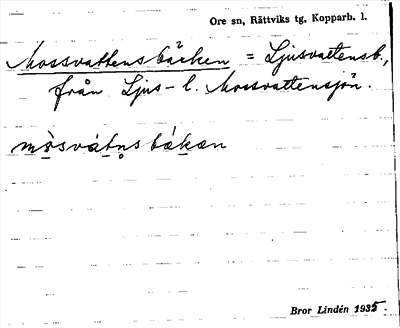 Ore sn, Rättviks tg, Kopparb. l.
Mossvattensbäcken = Ljusvattensb.,
från Ljus- l. Mossvattensjön.
mòsvátnsbǽkæn
Bror Lindén 1935.